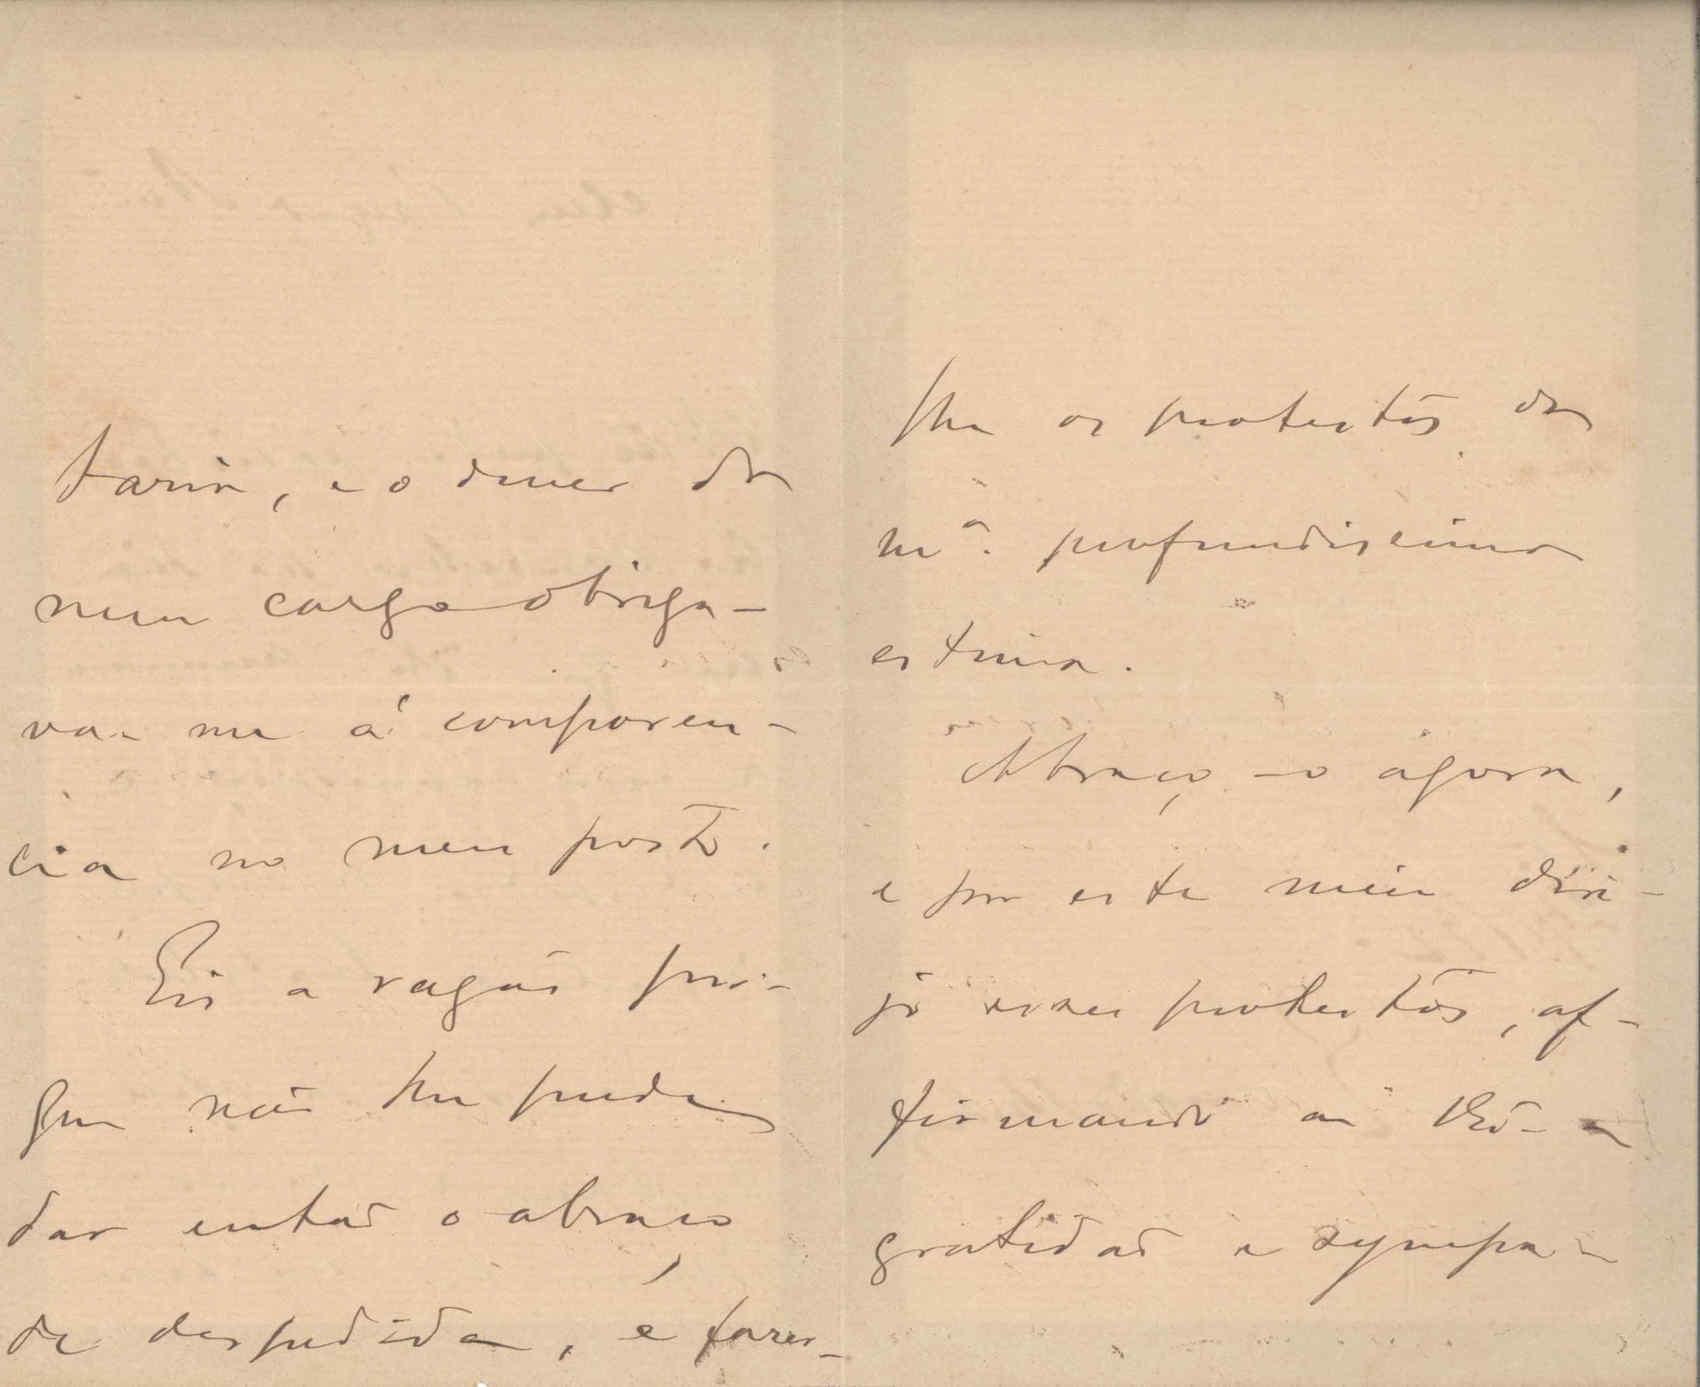 taria, e o dever do
meu cargo obriga-
va-me á comparen-
cia no meu posto.
Eis a razão por-
que não lhe pude
dar então o abraço
de despedida, e fazer-
lhe os protestos da
mª. profundissima
estima.
Abraço-o agora,
e por este meio diri-
jo esses protestos, af-
firmando a
gratidão e sympa-